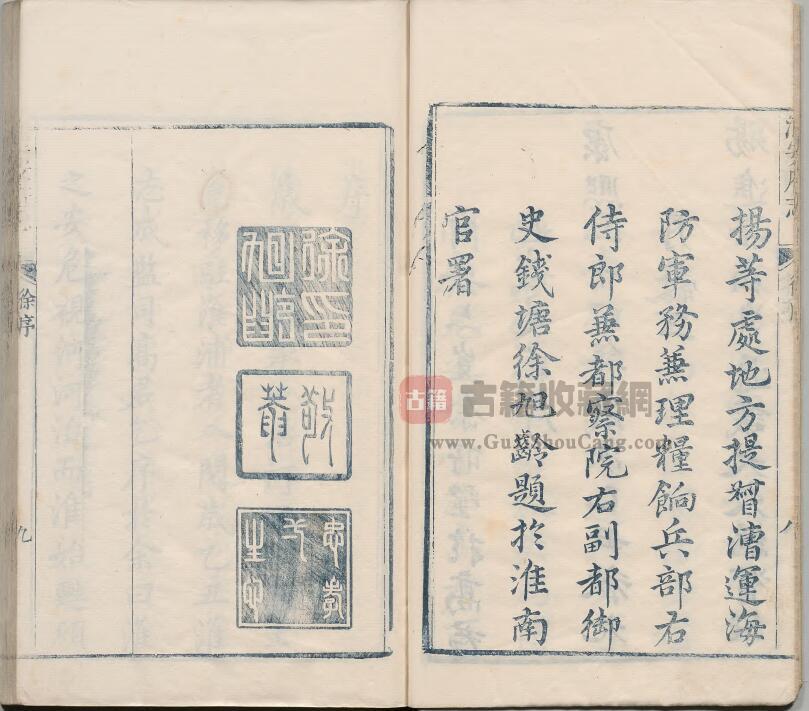 淮安府志
徐序
八
揚等處地方提督漕運海
防軍務兼理糧餉兵部右
侍郎兼都察院右副都御
史錢塘徐旭齡題於淮南
官署
徐印
旭齡
敬
菴
忠孝
徐序
九
古籍
古籍收藏網
www.GuJiShouCang.com